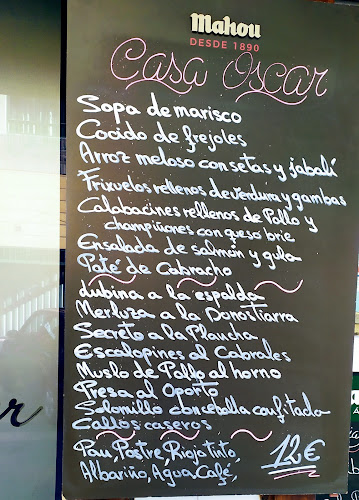 Mahou
DESDE 1890
Casa Oscar
Sopa de marisco
Cocido de frejoles
Arroz meloso con setas y jabalí
Frixuelos rellenos de verdura y gambas
Calabacines rellenos de Pollo y
champiñones con queso brie
Ensalada de salmón y gula
Paté de Cabracho
Lubina a la espalda
Merluza a la Donostiarra
Secreto a la Plancha
Escalopines al Cabrales
Muslo de Pollo al horno
Presa al Oporto
Solomillo con cebolla confitada
Callos caseros
Pan, Postre, Rioja tinto,
Albariño, Agua, Café,
12€